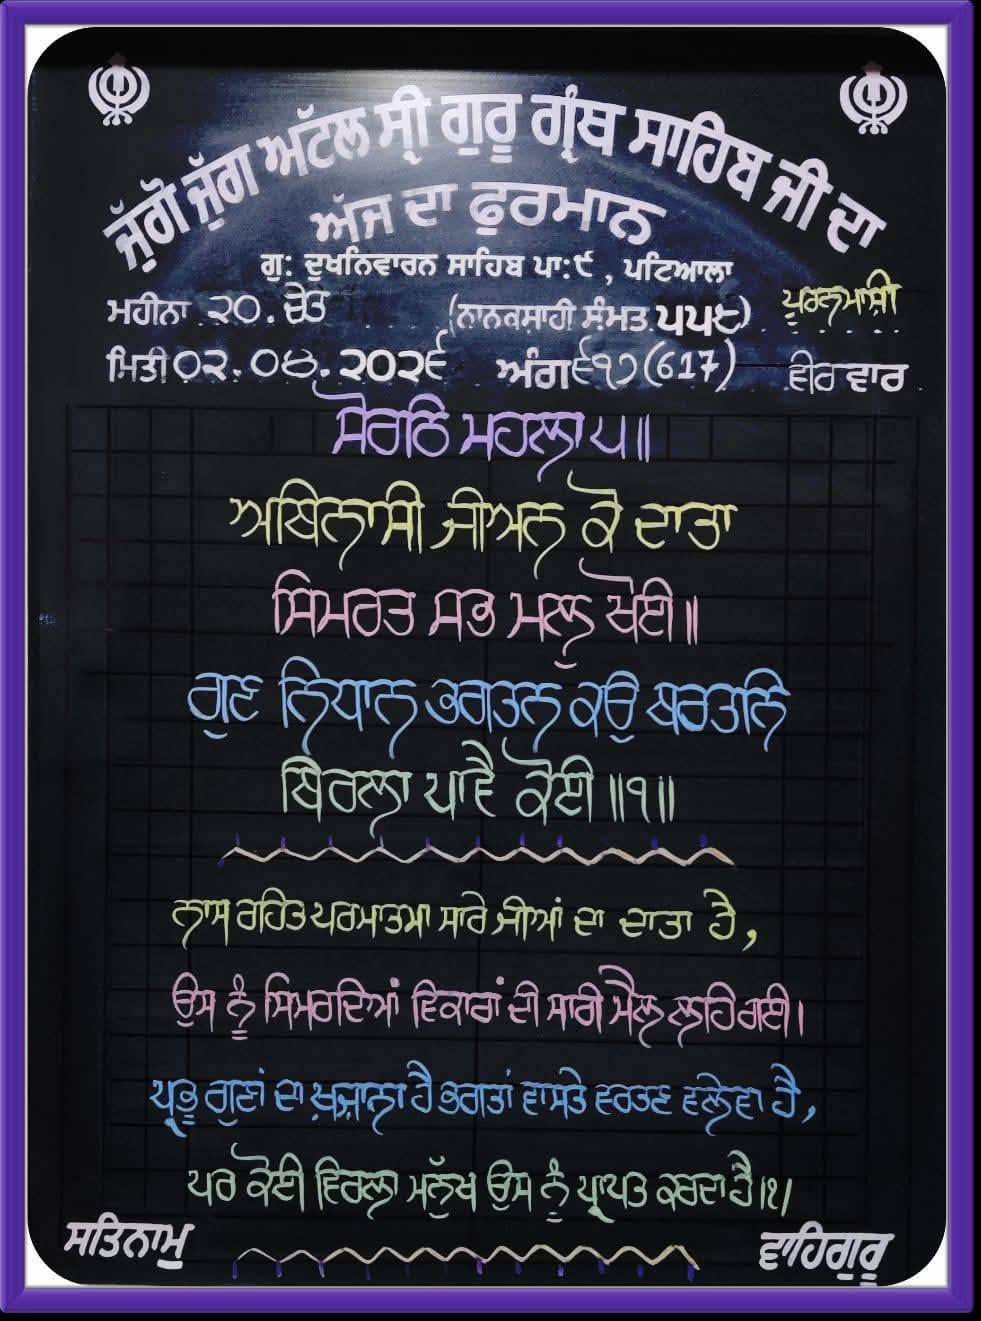 ਜੁੱਗੋ ਜੁੱਗ ਅਟੱਲ ਸ੍ਰੀ ਗੁਰੂ ਗ੍ਰੰਥ ਸਾਹਿਬ ਜੀ ਦਾ
ਅੱਜ ਦਾ ਫੁਰਮਾਨ
ਗੁ: ਦੁਖਨਿਵਾਰਨ ਸਾਹਿਬ ਪਾ:੯, ਪਟਿਆਲਾ
ਮਹੀਨਾ ੨੦. ਚੇਤ (ਨਾਨਕਸਾਹੀ ਸੰਮਤ ੫੫੮) ਪੂਰਨਮਾਸ਼ੀ
ਮਿਤੀ ੦੨.੦੪.੨੦੨੬ ਅੰਗ ੬੧੭ (617) ਵੀਰਵਾਰ
ਸੋਰਠਿ ਮਹਲਾ ੫॥
ਅਬਿਨਾਸੀ ਜੀਅਨ ਕੋ ਦਾਤਾ
ਸਿਮਰਤ ਸਭ ਮਲੁ ਖੋਈ॥
ਗੁਣ ਨਿਧਾਨ ਭਗਤਨ ਕਉ ਬਰਤਨਿ
ਬਿਰਲਾ ਪਾਵੈ ਕੋਈ॥੧॥
ਨਾਸ ਰਹਿਤ ਪਰਮਾਤਮਾ ਸਾਰੇ ਜੀਆਂ ਦਾ ਦਾਤਾ ਹੈ,
ਉਸ ਨੂੰ ਸਿਮਰਦਿਆਂ ਵਿਕਾਰਾਂ ਦੀ ਸਾਰੀ ਮੈਲ ਲਹਿ ਗਈ।
ਪ੍ਰਭੂ ਗੁਣਾਂ ਦਾ ਖ਼ਜ਼ਾਨਾ ਹੈ ਭਗਤਾਂ ਵਾਸਤੇ ਵਰਤਣ ਵਲੇਵਾ ਹੈ,
ਪਰ ਕੋਈ ਵਿਰਲਾ ਮਨੁੱਖ ਉਸ ਨੂੰ ਪ੍ਰਾਪਤ ਕਰਦਾ ਹੈ।੧।
ਸਤਿਨਾਮੁ ਵਾਹਿਗੁਰੂ